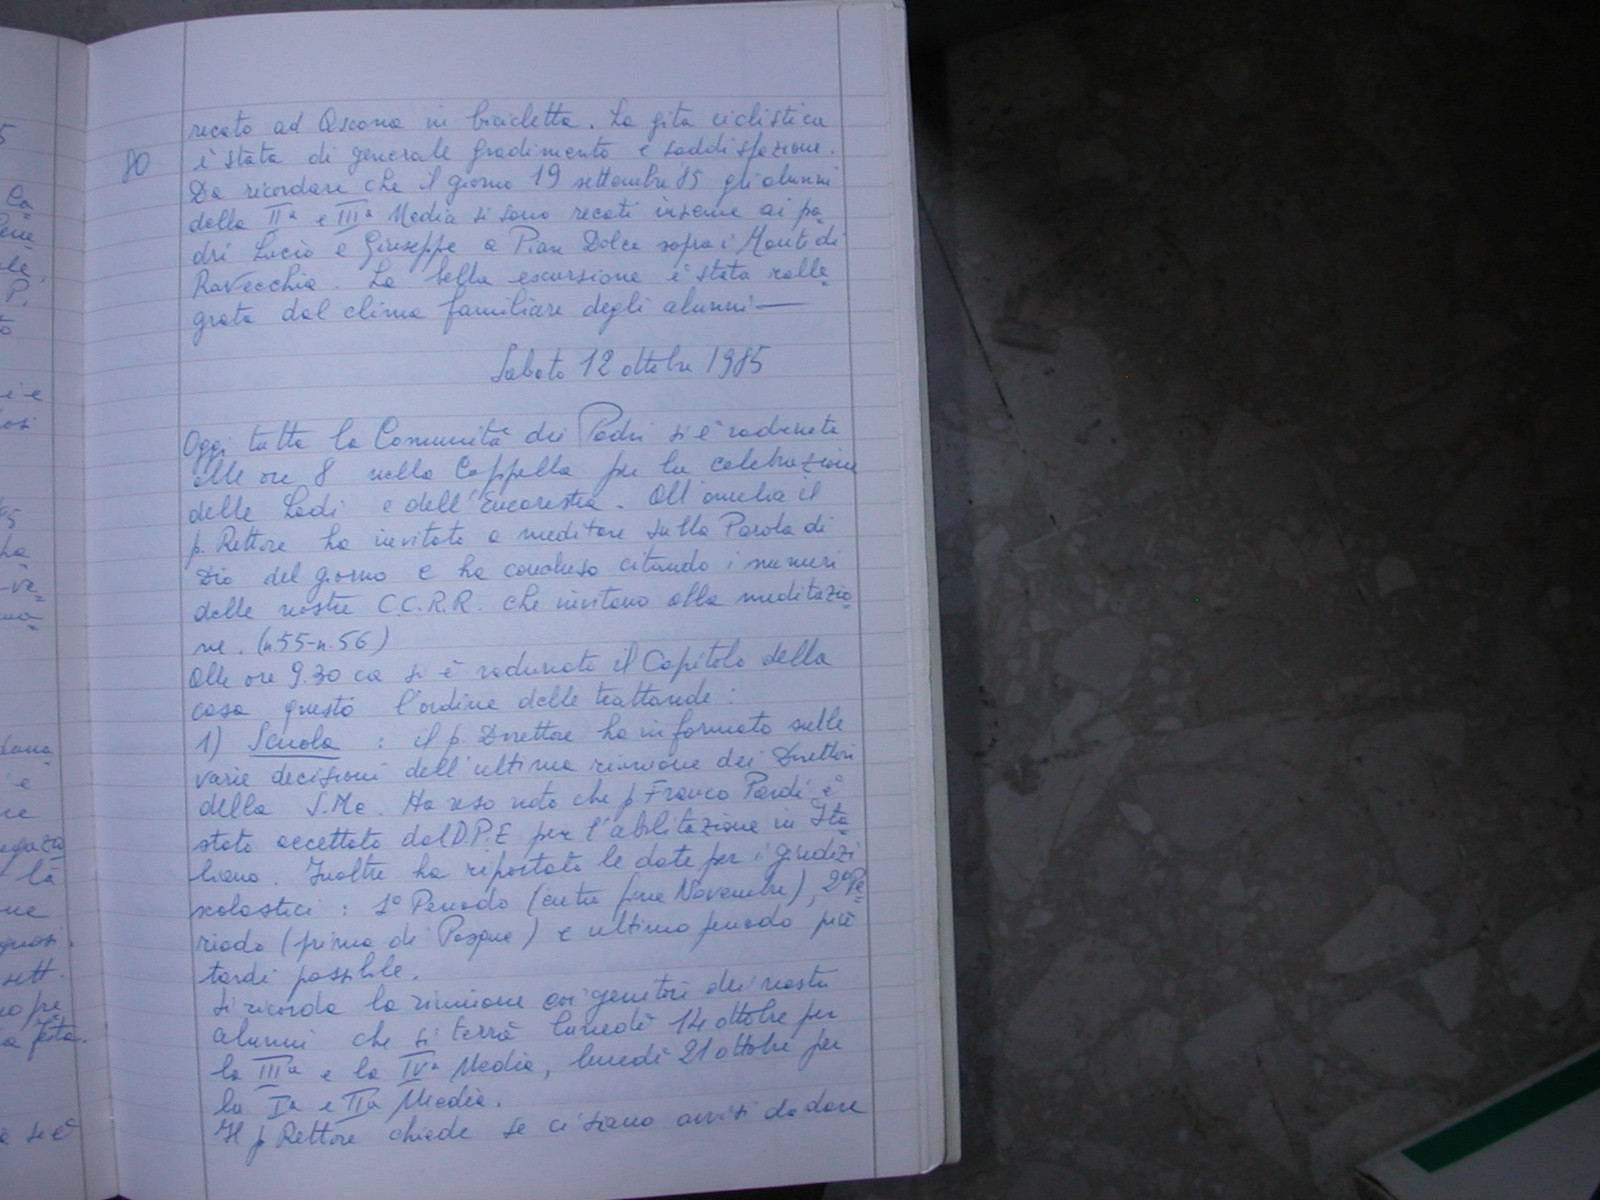 80
recato ad Ascona in bicicletta. La gita ciclistica
è stata di generale gradimento e soddisfazione.
Da ricordare che il giorno 19 settembre 85 gli alunni
della IIª e IIIª Media si sono recati insieme ai pa=
dri Lucio e Giuseppe a Pian Dolce sopra i Monti di
Ravecchia. La bella escursione è stata ralle=
grata dal clima familiare degli alunni —
Sabato 12 ottobre 1985
Oggi tutta la Comunità dei Padri si è radunata
alle ore 8 nella Cappella per la celebrazione
delle Lodi e dell'Eucarestia. All'omelia il
p. Rettore ha invitato a meditare sulla Parola di
Dio del giorno e ha concluso citando i numeri
delle nostre C.C.R.R. che invitano alla meditazio=
ne. (n.55-n.56)
Alle ore 9.30 ca si è radunato il Capitolo della
casa questo l'ordine delle trattande:
1) Scuola : il p. Direttore ha informato sulle
varie decisioni dell'ultima riunione dei Direttori
della S.Me. Ha reso noto che p Franco Pardi è
stato accettato dal D.P.E per l'abilitazione in Ita=
liano. Inoltre ha riportato le date per i giudizi
scolastici : 1º Periodo (entro fine Novembre), 2º Pe=
riodo (prima di Pasqua) e ultimo periodo più
tardi possibile.
Si ricorda la riunione coi genitori dei nostri
alunni che si terrà lunedì 14 ottobre per
la IIIª e la IVª Media, lunedì 21 ottobre per
la Iª e IIª Media.
Il p Rettore chiede se ci siano avvisi da dare